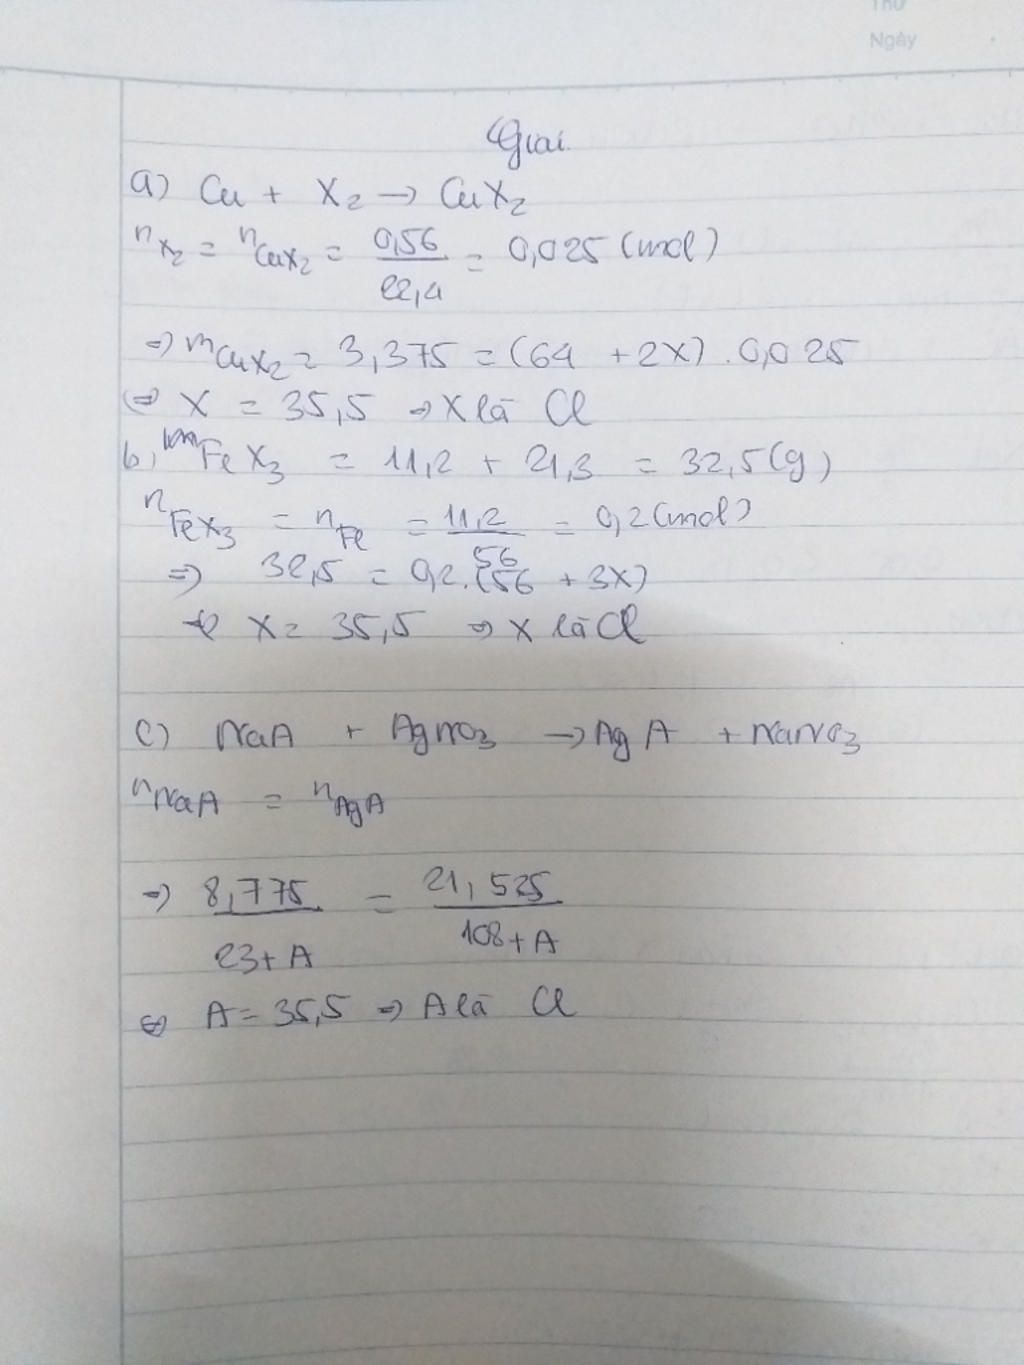 Thứ
Ngày
Giải
a) Cu + X₂ → CuX₂
nX₂ = nCuX₂ = 0,56/22,4 = 0,025 (mol)
=> mCuX₂ = 3,375 = (64 + 2X) . 0,025
<=> X = 35,5 => X là Cl
b, mFeX₃ = 11,2 + 21,3 = 32,5 (g)
nFeX₃ = nFe = 11,2/56 = 0,2 (mol)
=> 32,5 = 0,2.(56 + 3X)
<=> X = 35,5 => X là Cl
c) NaA + AgNO₃ → AgA + NaNO₃
nNaA = nAgA
=> 8,775/23+A = 21,525/108+A
<=> A = 35,5 => A là Cl